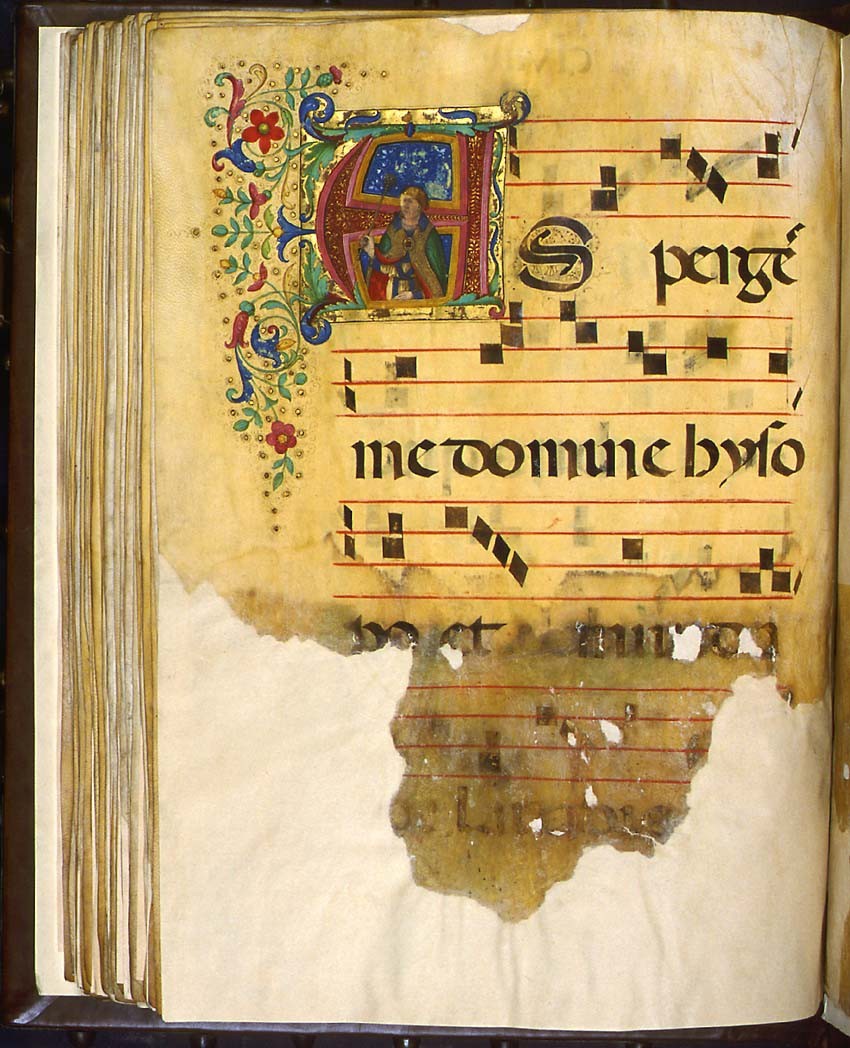 AS perges
me domine hyso
po et mun